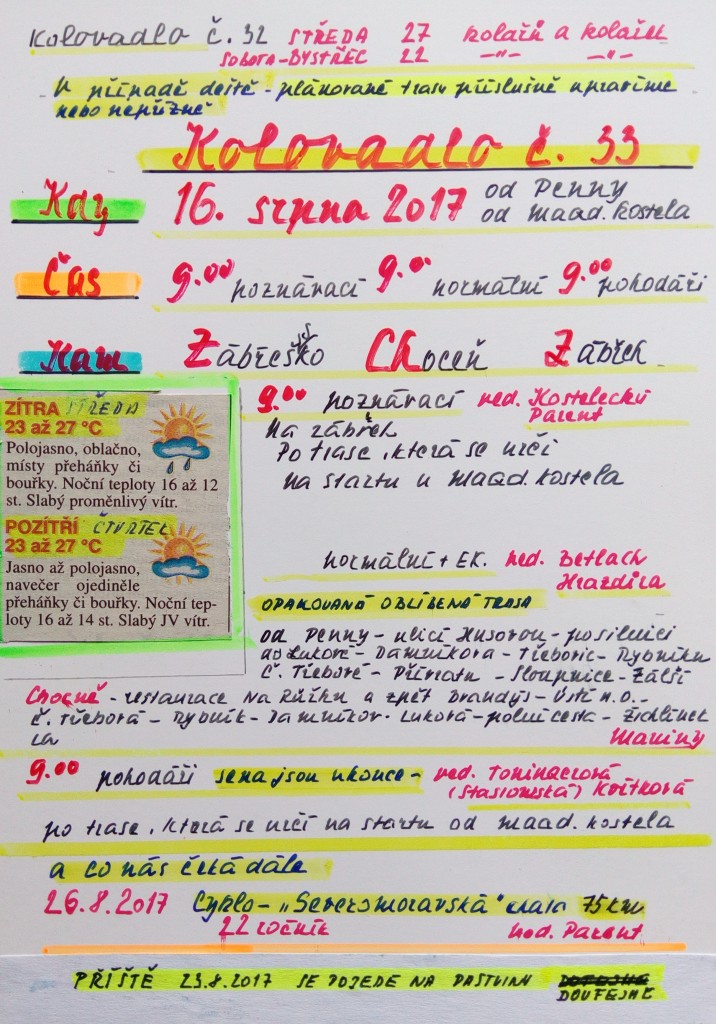 Kolovadlo č. 32 STŘEDA 27 kolařů a kolařek
SOBOTA-BYSTŘEC 22 -"- -"-
V případě deště - plánované trasy příslušně upravíme
nebo nepřízně
Kolovadlo č. 33
Kdy 16. srpna 2017 od Penny
od maad. kostela
Čas 9.00 poznávací 9.00 normální 9.00 pohodáři
Kam Zábřežško CHoceň Zábřeh
ZÍTRA STŘEDA
23 až 27 °C
Polojasno, oblačno,
místy přeháňky či
bouřky. Noční teploty 16 až 12
st. Slabý proměnlivý vítr.
POZÍTŘÍ ČTVRTEK
23 až 27 °C
Jasno až polojasno,
navečer ojediněle
přeháňky či bouřky. Noční tep-
loty 16 až 14 st. Slabý JV vítr.
9.00 poznávací ved. Kostelecký
Parent
Na zábřeh
Po trase, která se určí
na startu u maad. kostela
normální + EK. ved. Betlach
Hrazdira
OPAKOVANÁ OBLÍBENÁ TRASA
od Penny - ulicí Husovou - po silnici
do Lukové - Damníkova - Třebovic - Rybníku
Č. Třebové - Přívratu - Sloupnice - Zálší
Chocně - restaurace Na Růžku a zpět Brandýs - Ústí n.O. -
Č. Třebová - Rybník - Damníkov - Luková - polní cesta - Žichlínek
La Maniny
9.00 pohodáři sena jsou ukonce - ved. Toninacrová
Květková
po trase, která se určí na startu od maad. kostela
a co nás čeká dále
26.8.2017 Cyklo- „Severomoravská" 75 km
22 ročník hod. Parent
PŘÍŠTĚ 23.8.2017 SE POJEDE NA PASTVINY
DOUFEJME